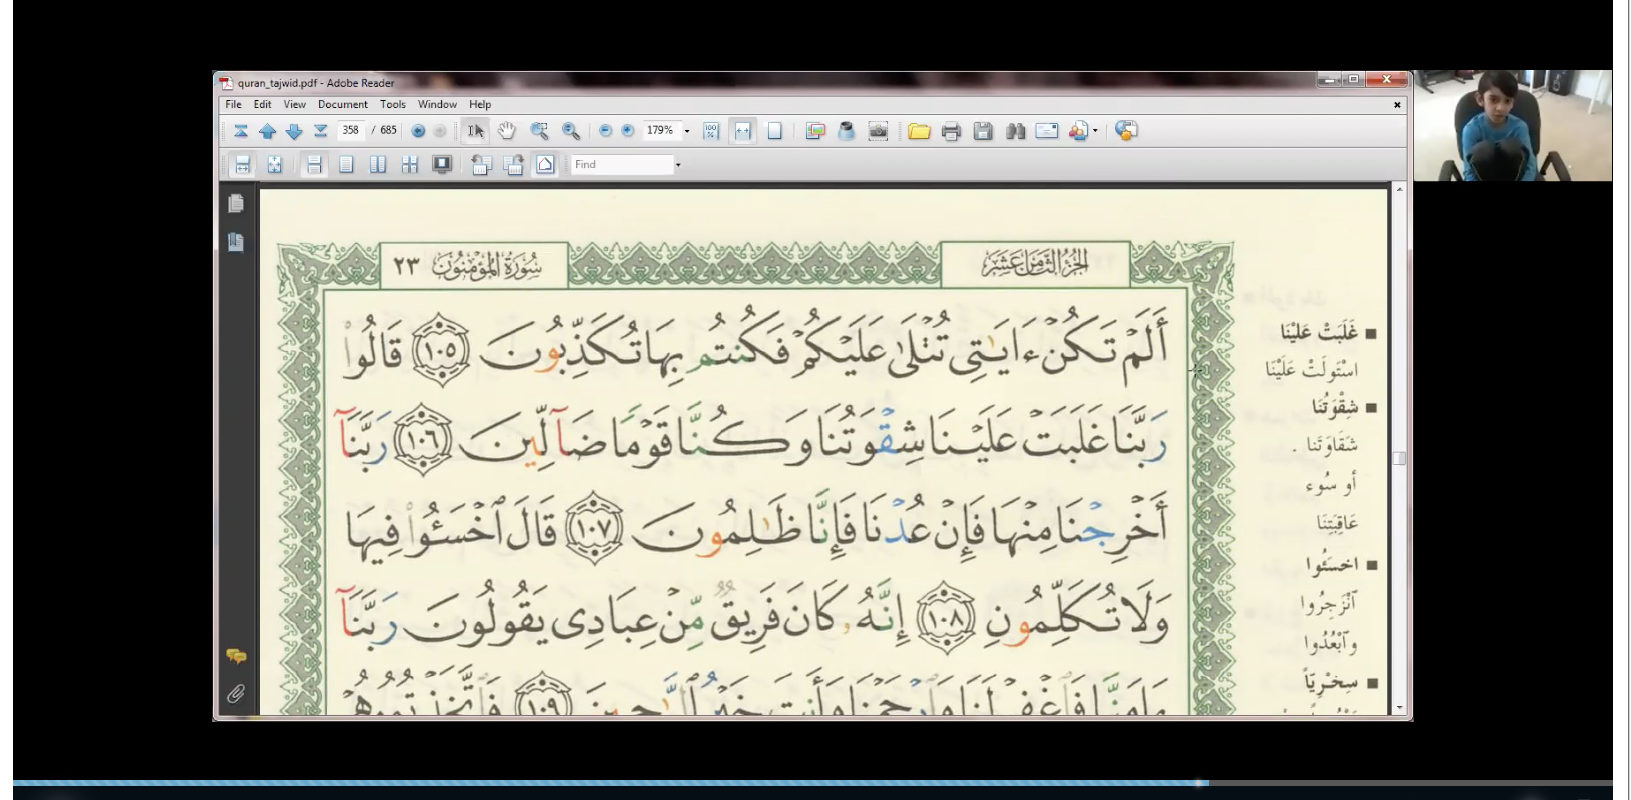 quran_tajwid.pdf - Adobe Reader
File Edit View Document Tools Window Help
358 / 685 179%
Find
الجُزءُ الثَّامِنَ عَشَرَ
سُورَةُ المُؤْمِنُونَ ٢٣
أَلَمْ تَكُنْ ءَايَـٰتِى تُتْلَىٰ عَلَيْكُمْ فَكُنتُم بِهَا تُكَذِّبُونَ ١٠٥ قَالُوا۟
رَبَّنَا غَلَبَتْ عَلَيْنَا شِقْوَتُنَا وَكُنَّا قَوْمًا ضَآلِّينَ ١٠٦ رَبَّنَآ
أَخْرِجْنَا مِنْهَا فَإِنْ عُدْنَا فَإِنَّا ظَـٰلِمُونَ ١٠٧ قَالَ ٱخْسَـُٔوا۟ فِيهَا
وَلَا تُكَلِّمُونِ ١٠٨ إِنَّهُۥ كَانَ فَرِيقٌ مِّنْ عِبَادِى يَقُولُونَ رَبَّنَآ
ءَامَنَّا فَٱغْفِرْ لَنَا وَٱرْحَمْنَا وَأَنتَ خَيْرُ ٱلرَّٰحِمِينَ ١٠٩ فَٱتَّخَذْتُمُوهُمْ
■ غَلَبَتْ عَلَيْنَا
اسْتَوْلَتْ عَلَيْنَا
■ شِقْوَتُنَا
شَقَاوَتُنا .
أو سُوء
عَاقِبَتِنَا
■ اخسَئُوا
آنْزَجِرُوا
وآبْعُدُوا
■ سِخْرِيّاً